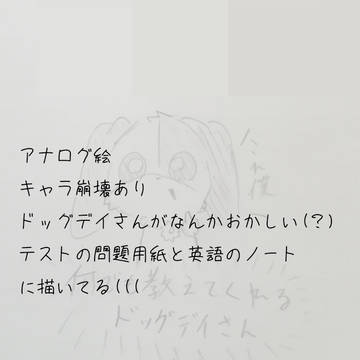 アナログ絵
キャラ崩壊あり
ドッグデイさんがなんかおかしい(?)
テストの問題用紙と英語のノート
に描いてる(((
教えてくれる
ドッグデイさん